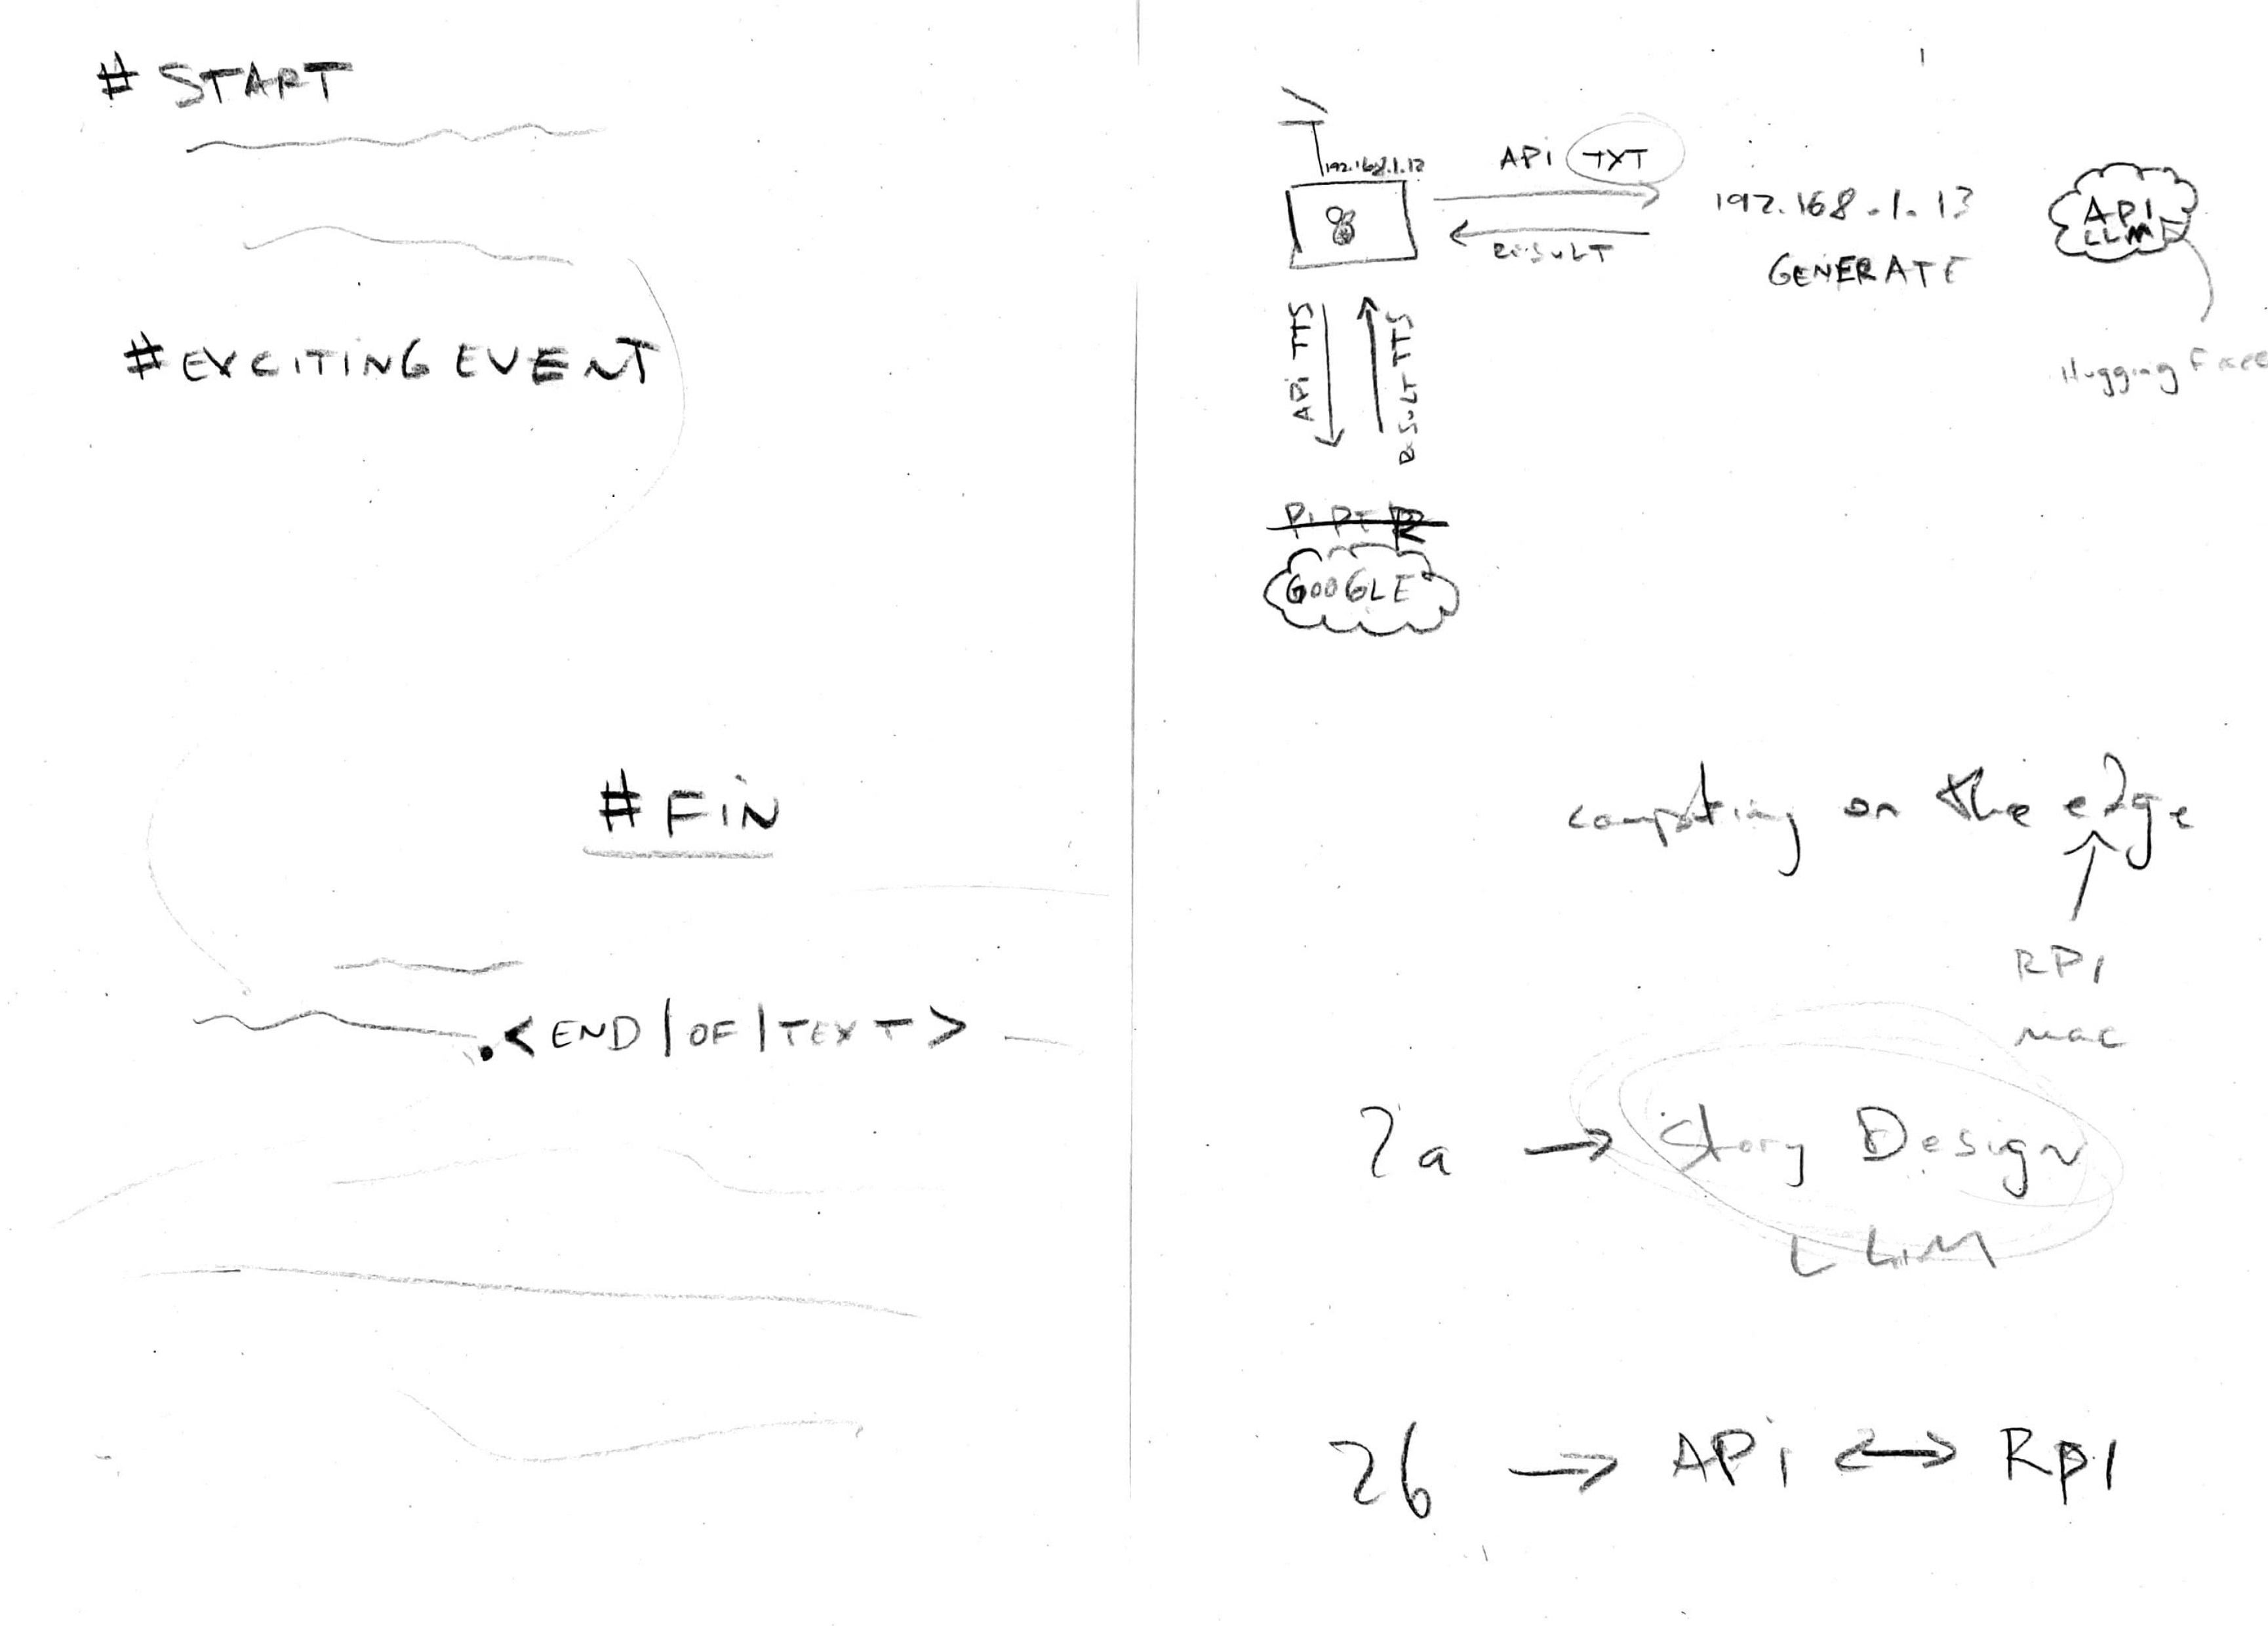 # START
# EXCITING EVENT
# FIN
.<END|OF|TEXT>
192.168.1.12
API TXT
RESULT
192.168.1.13
GENERATE
API
LLM
Hugging Face
API TTS
RESULT TTS
PIPER
GOOGLE
computing on the edge
RPI
mac
2a → Story Design
LLM
2b → API ↔ RPI